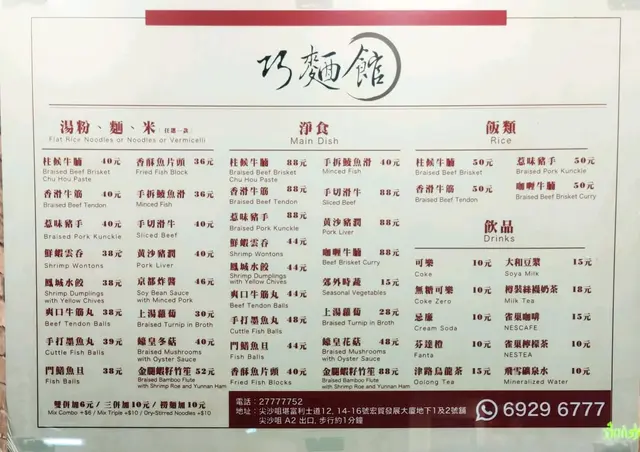 巧麵館
湯粉、麵、米 任選一款
Flat Rice Noodles or Noodles or Vermicelli
柱候牛腩 40元
Braised Beef Brisket
Chu Hou Paste
香滑牛筋 40元
Braised Beef Tendon
惹味豬手 40元
Braised Pork Kunckle
鮮蝦雲吞 38元
Shrimp Wontons
鳳城水餃 38元
Shrimp Dumplings
with Yellow Chives
爽口牛筋丸 38元
Beef Tendon Balls
手打墨魚丸 39元
Cuttle Fish Balls
門鱔魚旦 38元
Fish Balls
香酥魚片頭 36元
Fried Fish Block
手拆鯪魚滑 36元
Minced Fish
手切滑牛 40元
Sliced Beef
黃沙豬膶 40元
Pork Liver
京都炸醬 46元
Soy Bean Sauce
with Minced Pork
上湯蘿蔔 30元
Braised Turnip in Broth
蠔皇冬菇 40元
Braised Mushrooms
with Oyster Sauce
金腿蝦籽竹笙 52元
Braised Bamboo Flute
with Shrimp Roe and Yunnan Ham
雙併加6元 / 三併加10元 / 撈麵加10元
Mix Combo +$6 / Mix Triple +$10 / Dry-Stirred Noodles +$10
淨食
Main Dish
柱候牛腩 88元
Braised Beef Brisket
Chu Hou Paste
香滑牛筋 88元
Braised Beef Tendon
惹味豬手 88元
Braised Pork Kunckle
鮮蝦雲吞 44元
Shrimp Wontons
鳳城水餃 44元
Shrimp Dumplings
with Yellow Chives
爽口牛筋丸 44元
Beef Tendon Balls
手打墨魚丸 48元
Cuttle Fish Balls
門鱔魚旦 44元
Fish Balls
香酥魚片頭 40元
Fried Fish Blocks
手拆鯪魚滑 40元
Minced Fish
手切滑牛 88元
Sliced Beef
黃沙豬膶 88元
Pork Liver
咖喱牛腩 88元
Beef Brisket Curry
郊外時蔬 15元
Seasonal Vegetables
上湯蘿蔔 28元
Braised Turnip in Broth
蠔皇花菇 48元
Braised Mushrooms
with Oyster Sauce
金腿蝦籽竹笙 88元
Braised Bamboo Flute
with Shrimp Roe and Yunnan Ham
飯類
Rice
柱候牛腩 50元
Braised Beef Brisket
香滑牛筋 50元
Braised Beef Tendon
惹味豬手 50元
Braised Pork Kunckle
咖喱牛腩 50元
Braised Beef Brisket Curry
飲品
Drinks
可樂 10元
Coke
無糖可樂 10元
Coke Zero
忌廉 10元
Cream Soda
芬達橙 10元
Fanta
津路烏龍茶 15元
Oolong Tea
大和豆漿 15元
Soya Milk
樽裝絲襪奶茶 18元
Milk Tea
雀巢咖啡 15元
NESCAFE
雀巢檸檬茶 10元
NESTEA
飛雪礦泉水 10元
Mineralized Water
電話：27777752
地址：尖沙咀堪富利士道12, 14-16號宏貿發展大廈地下1及2號舖
尖沙咀 A2 出口, 步行約1分鐘
6929 6777